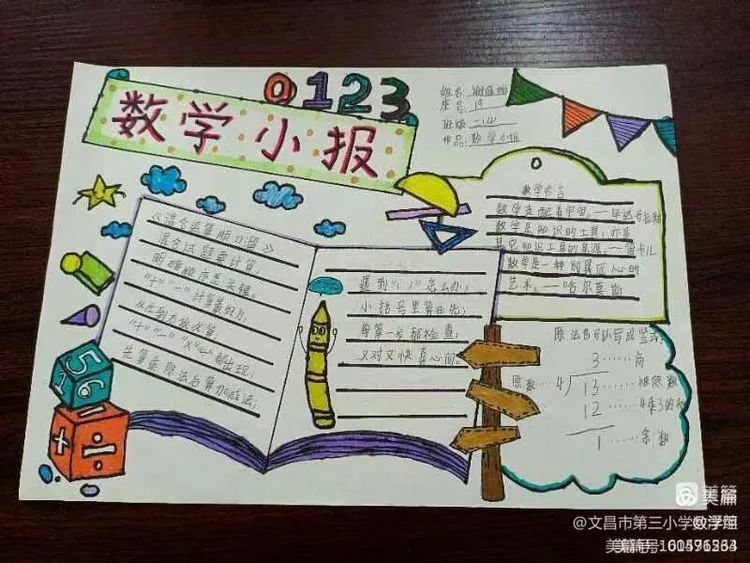 0123
数学小报
姓名:
座号:19
班级:二(4)
作品:数学小报
数学名言
数学支配着宇宙。——毕达哥拉斯
数学是知识的工具,亦是
其它知识工具的泉源。——笛卡儿
数学是一种别具匠心的
艺术。——哈尔莫斯
《混合运算顺口溜》
混合试题要计算,
明确顺序是关键。
"+""-"计算最好办,
从左到右依次算。
"+""-""×""÷"都出现,
先算乘除法后算加减法;
遇到"( )"怎么办,
小括号里算在先,
每算一步都检查,
又对又快喜心间。
除法也可以写成竖式:
3……商
除数…4 13……被除数
12……4乘3的积
1……余数
5
6
1
+
÷
美篇
@文昌市第三小学
美篇号: